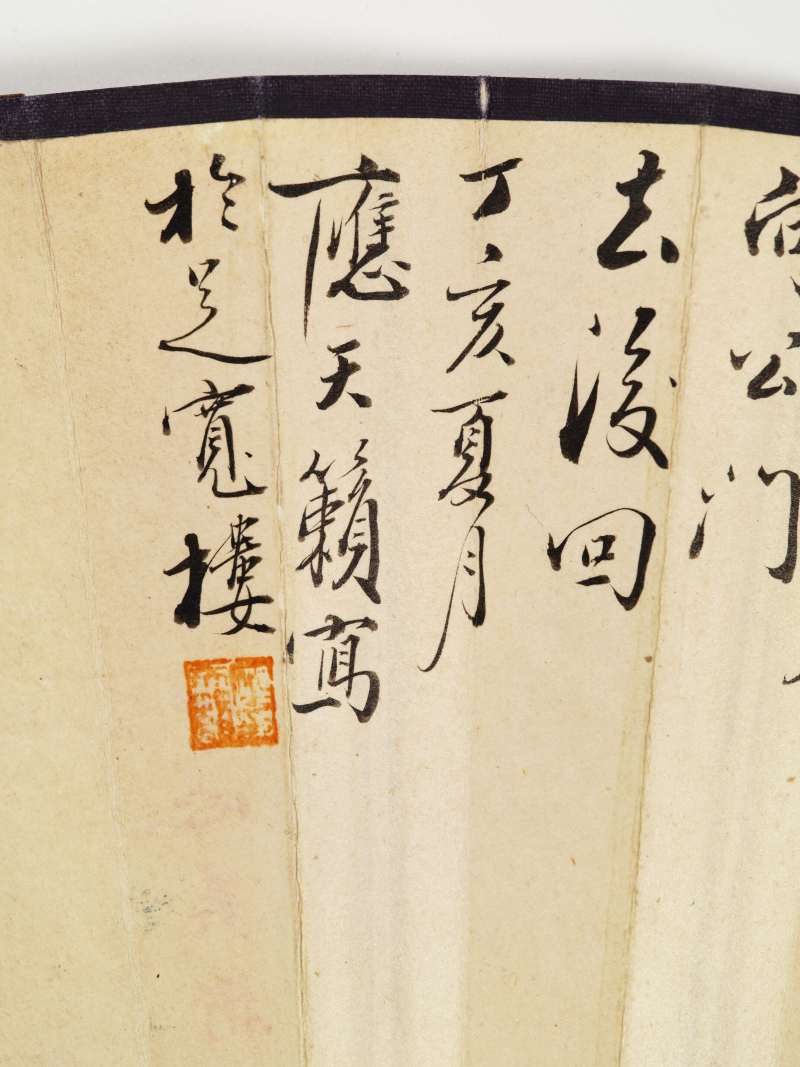 公門
去後回
丁亥夏月
應天籟寫
於足寬樓